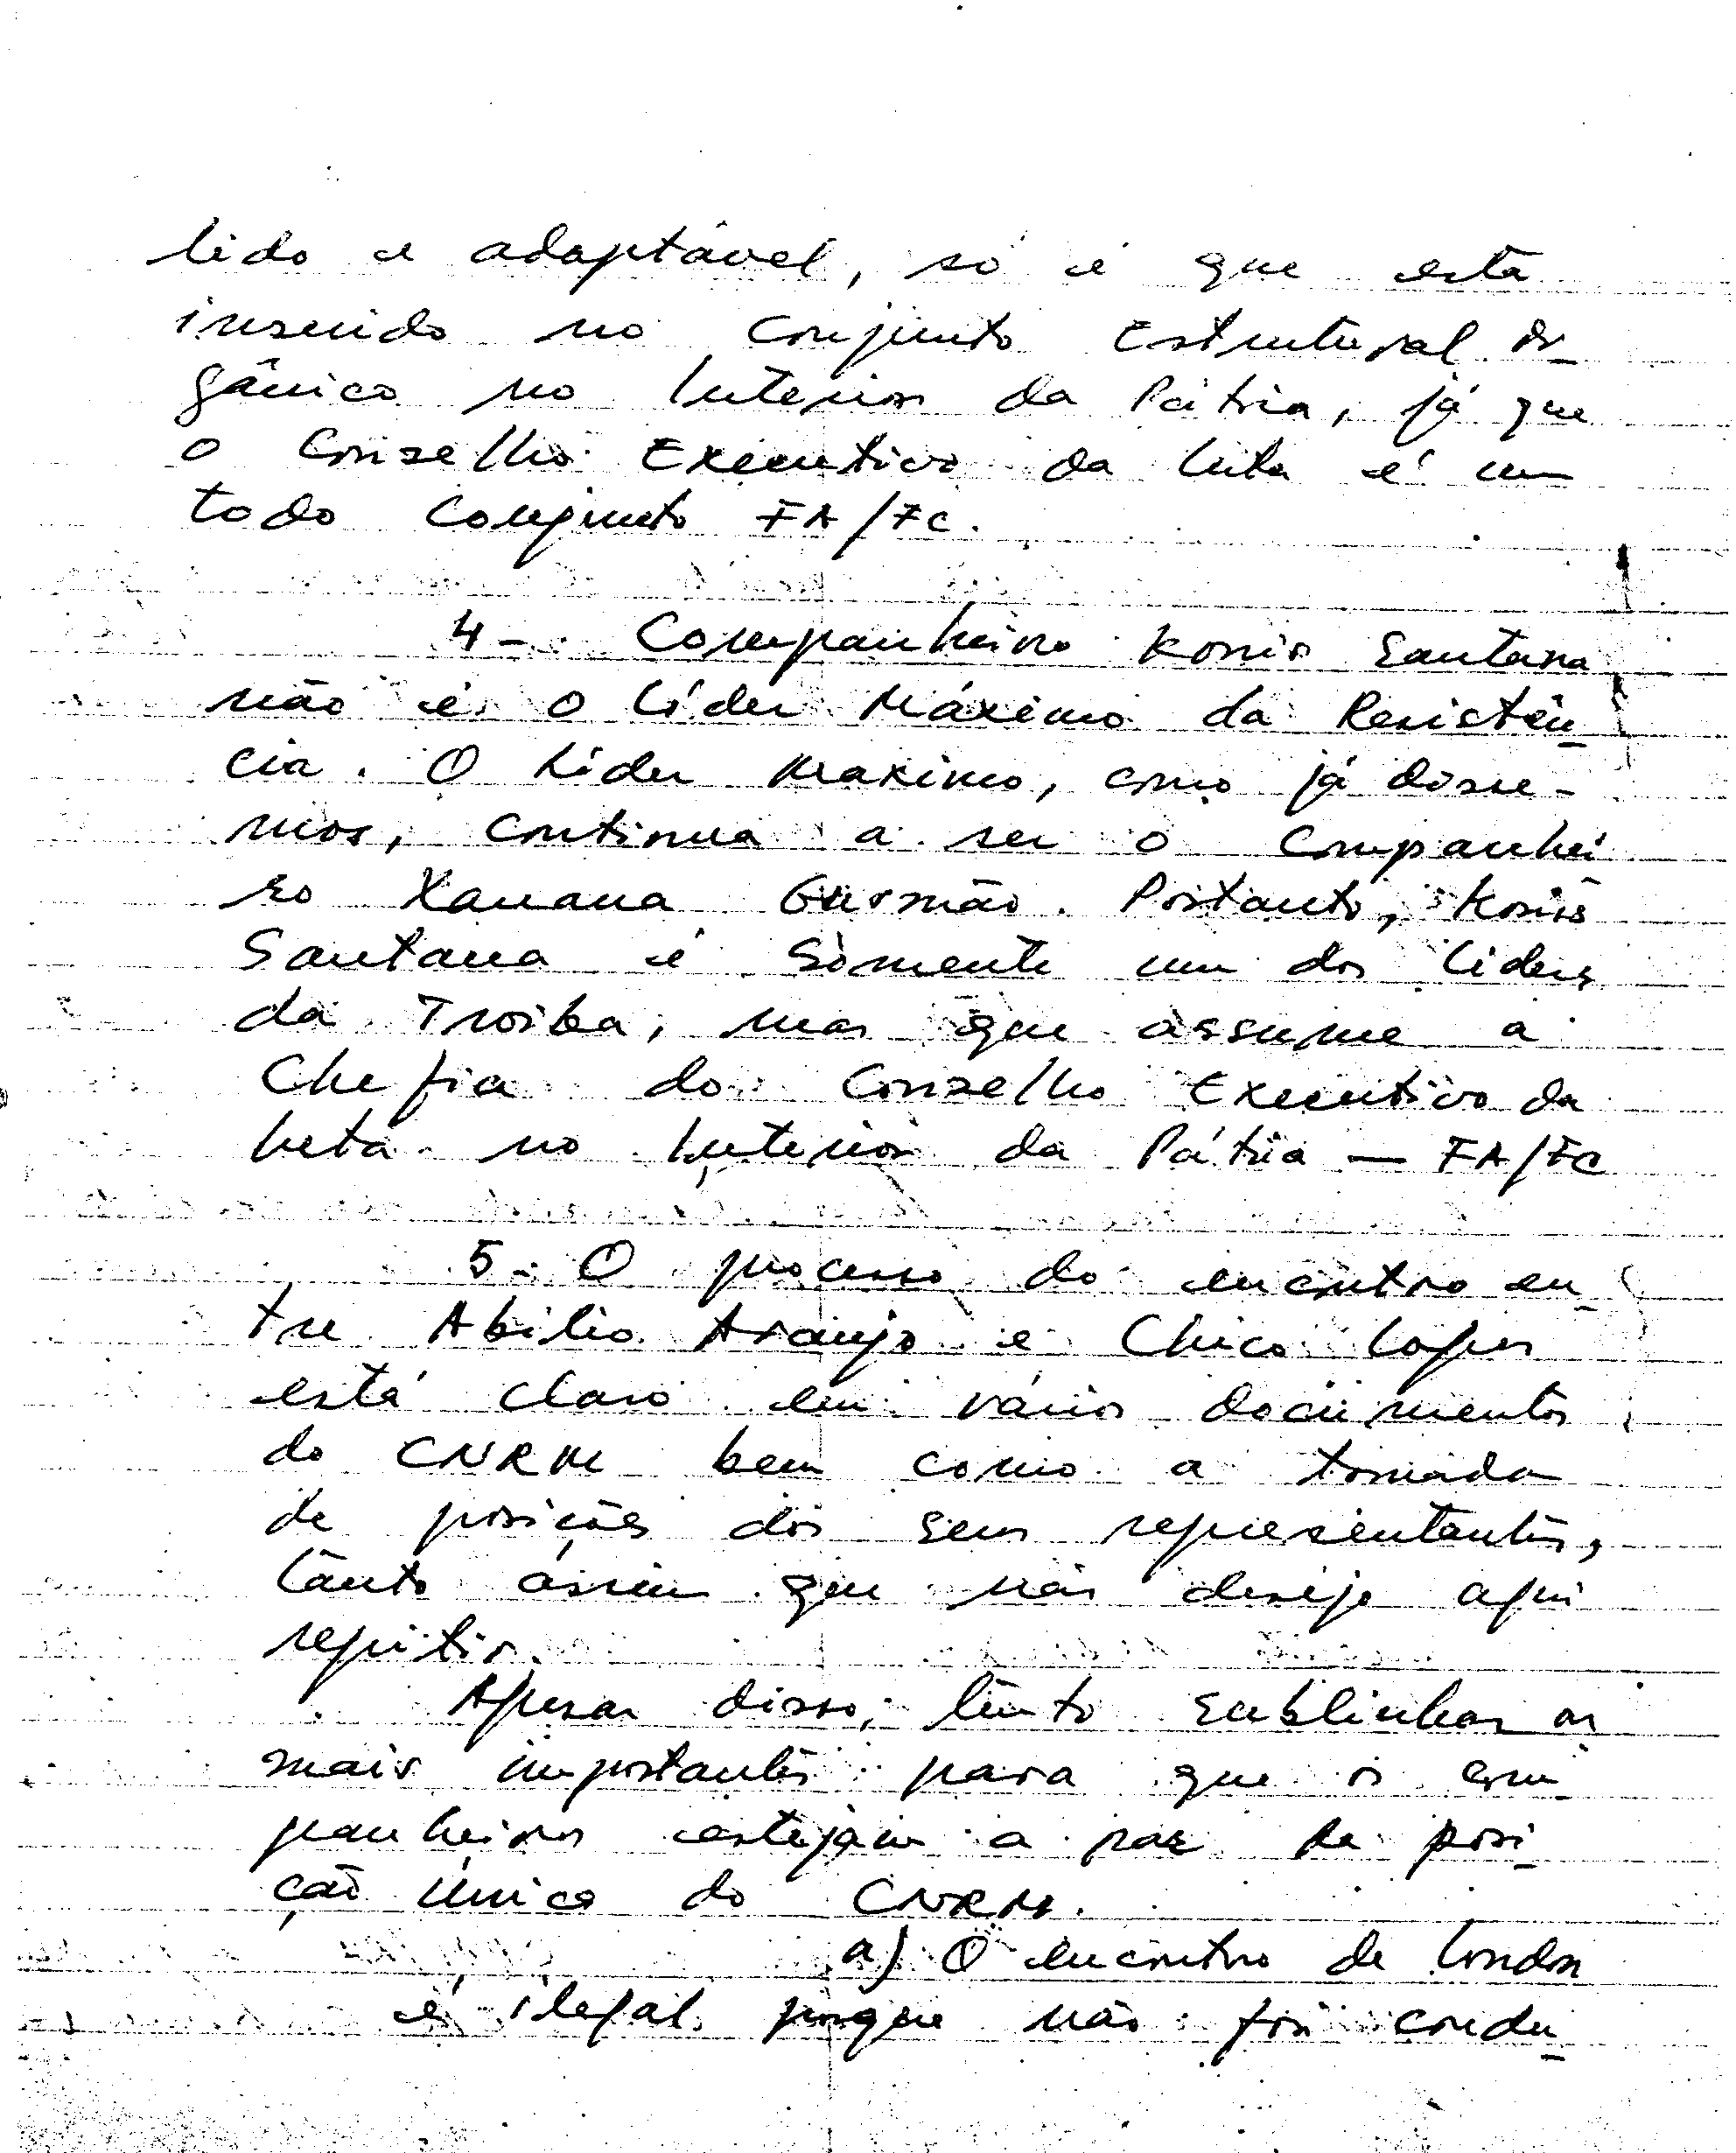 lido e adaptável, só é que está
inserido no Conjunto Estrutural or_
gânico no Interior da Pátria, já que
o Conselho Executivo da Luta é um
todo Conjunto FA/FC.
4-. Companheiro Konis Santana
não é o Líder Máximo da Resistên_
cia. O Líder Maximo, como já disse-
mos, continua a ser o Companhei
ro Xanana Gusmão. Portanto, Konis
Santana é Sòmente um dos líderes
da Troika, mas que assume a
Chefia do Conselho Executivo da
Luta no Interior da Pátria — FA/FC
5-. O processo do encontro en_
tre Abílio Araujo e Chico Lopes
está claro em vários documentos
do CNRM bem como a tomada
de posições dos seus representantes,
tanto assim que não desejo aqui
repitir.
Apesar disso, tento sublinhar os
mais importantes para que os com
panheiros estejam a par da posi_
ção única do CNRM.
a) O encontro de London
é ilegal porque não foi condu_